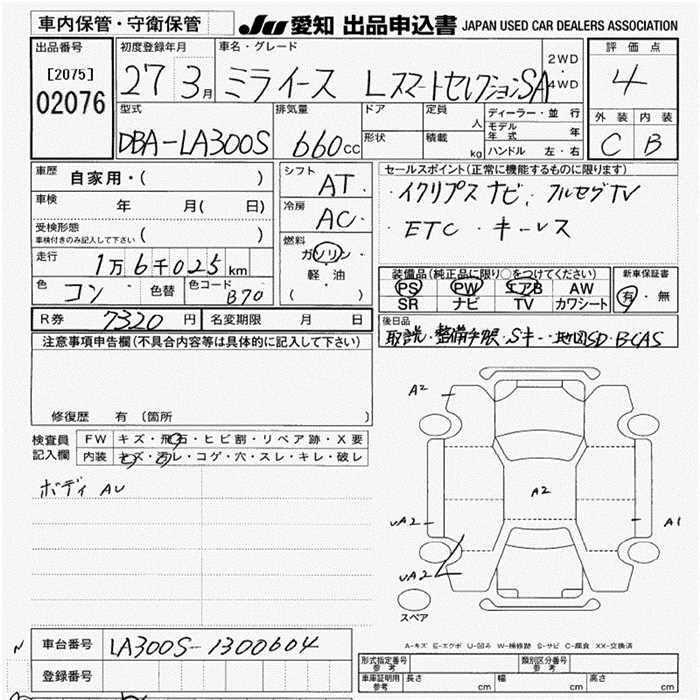 車内保管・守衛保管 JU 愛知 出品申込書 JAPAN USED CAR DEALERS ASSOCIATION
出品番号 初度登録年月 車名・グレード 2WD 評価点
[2075] 27 3月 ミライース LスマートセレクションSA 4WD 4
02076
型式 排気量 ドア 定員 人 ディーラー・並行 外装 内装
DBA-LA300S 660cc 形状 積載 kg モデル年式 年 C B
ハンドル 左・右
車歴 自家用・( ) シフト AT セールスポイント(正常に機能するものに限ります)
車検 年 月( 日) 冷房 AC ・イクリプスナビ, フルセグTV
受検形態 車検付きのみ記入して下さい ( ) ・ETC ・キーレス
走行 1万6千025km 燃料 ガソリン 軽・油 ( )
装備品(純正品に限り○をつけてください) 新車保証書
色 コン 色替 色コード B70 PS PW エアB AW 有・無
SR ナビ TV カワシート
R券 7320円 名変期限 月 日 後日品
取説・整備手帳・Sキー・地図SD・B-CAS
注意事項申告欄(不具合内容等は具体的に記入して下さい)
修復歴 有 (箇所 )
検査員記入欄 FW キズ・飛石・ヒビ割・リペア跡・X要
内装 キズ・汚レ・コゲ・穴・スレ・キレ・破レ
ボディ AU
A2
A2
UA2 A1
UA2
スペア
A-キズ E-エクボ U-凹み W-補修跡 S-サビ C-腐食 XX-交換済
N
車台番号 LA300S-1300604
登録番号
型式指定番号 参考 類別区分番号 参考
車庫証明用 参考 長さ cm 幅 cm 高さ cm